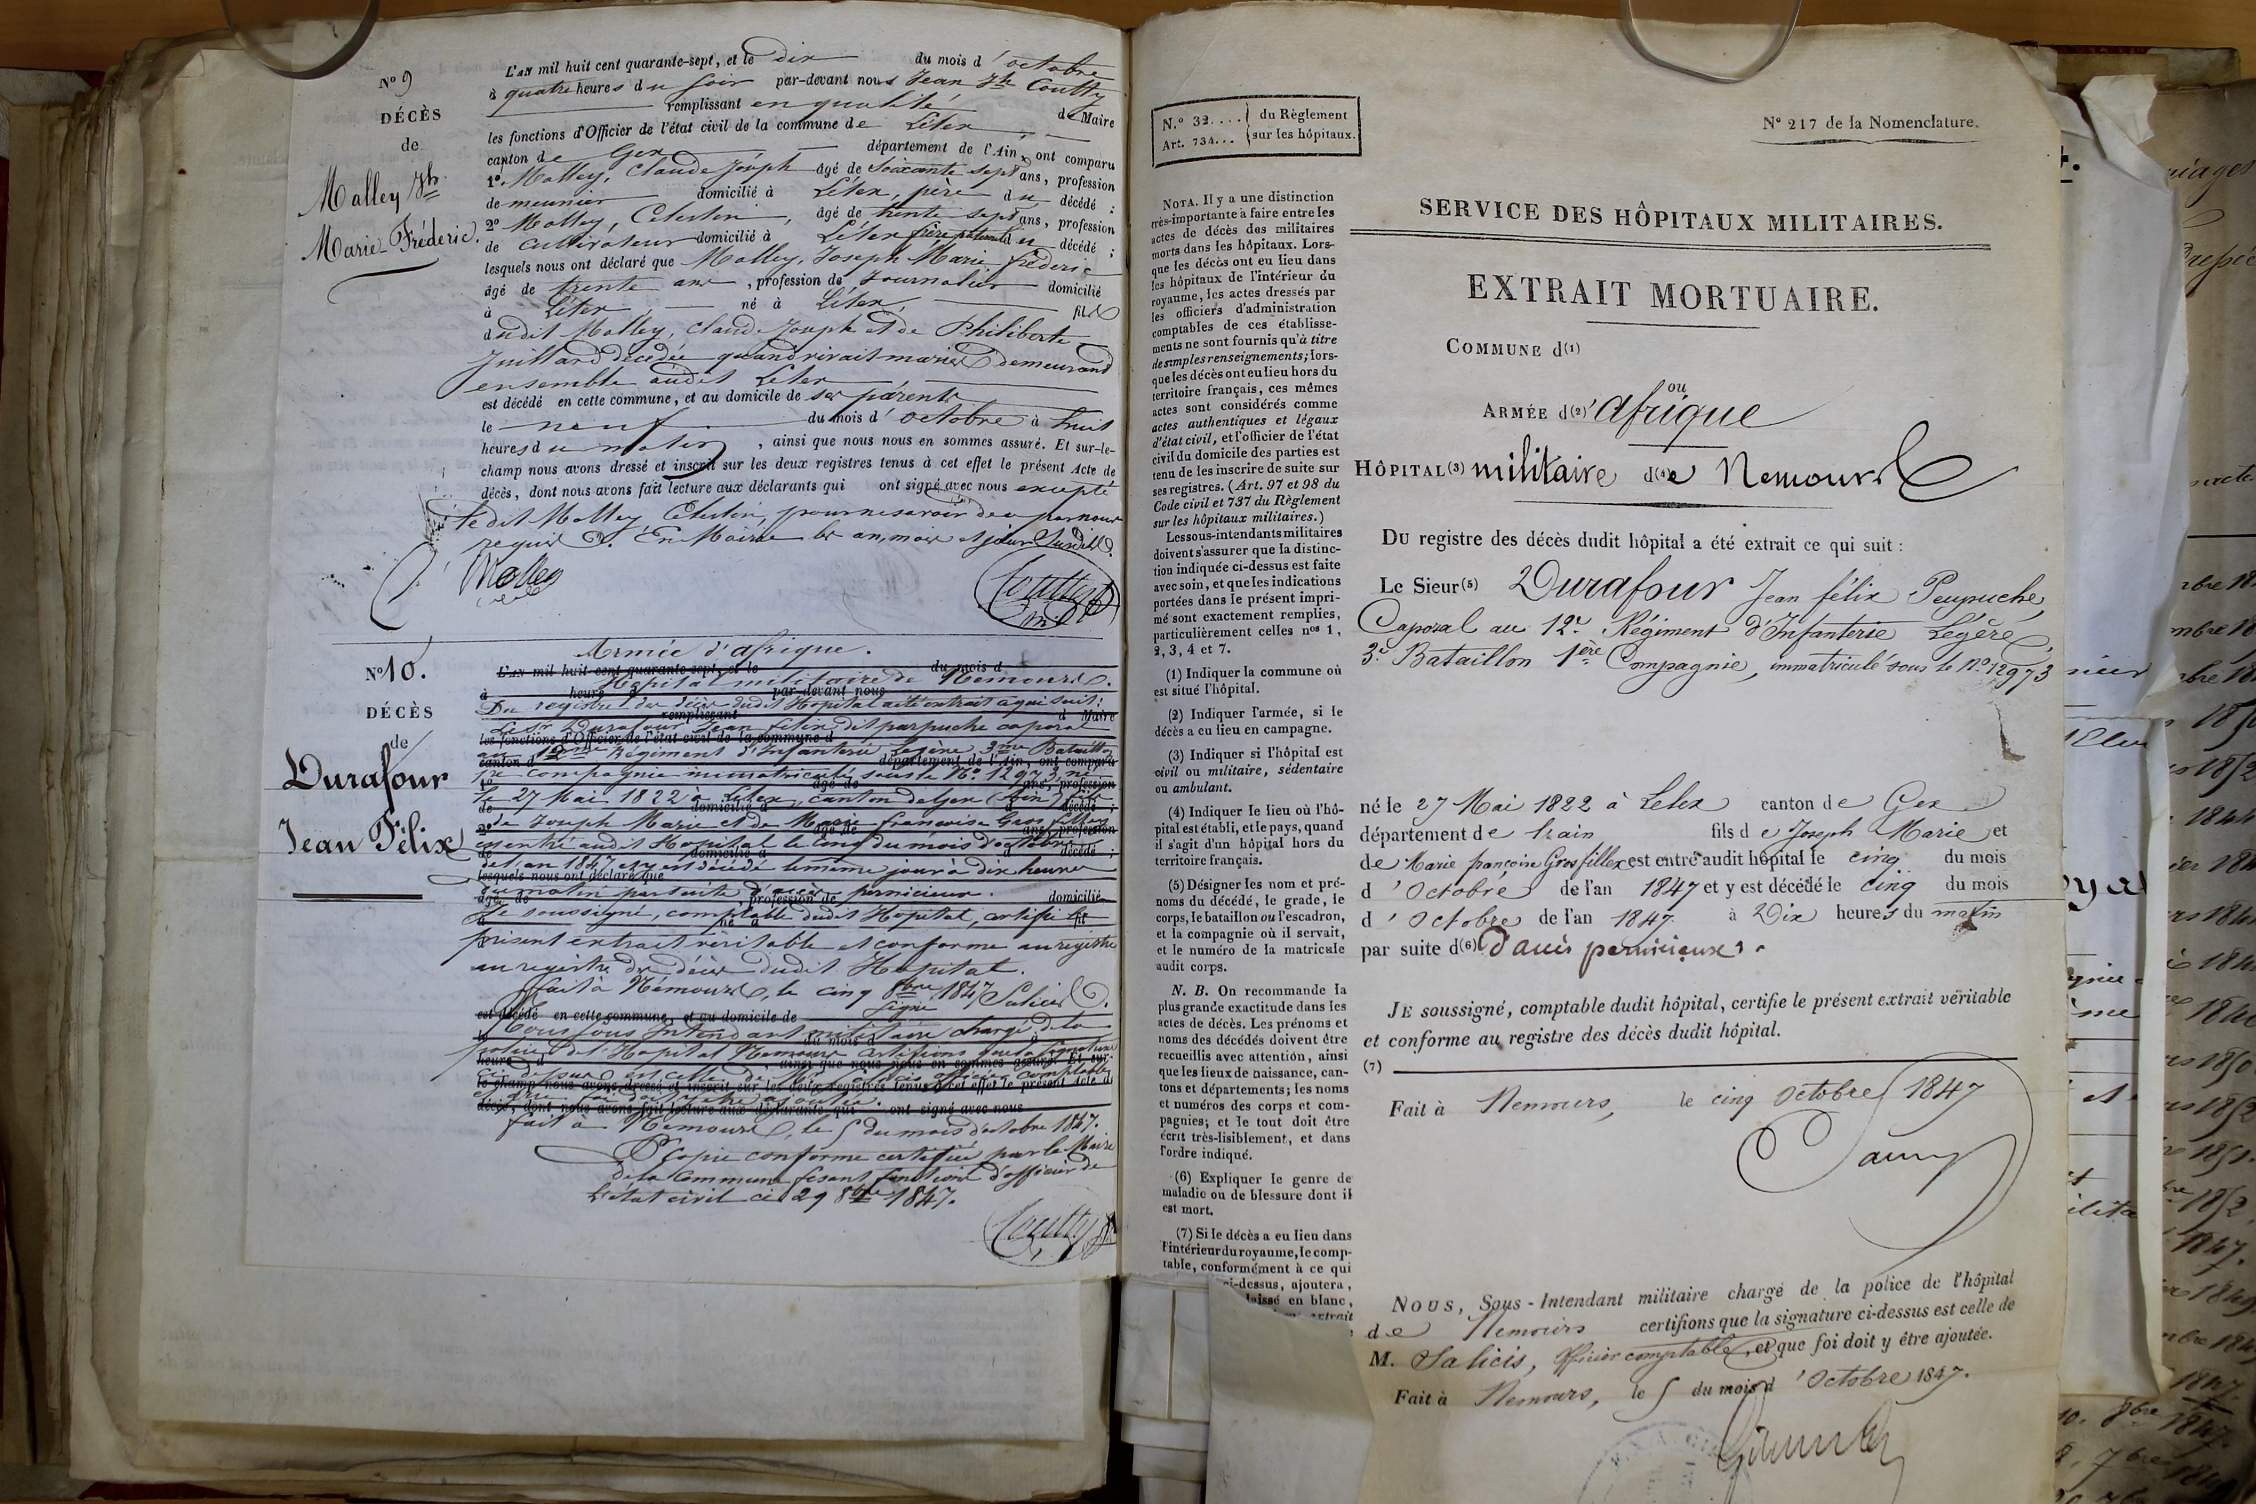 N° 9
DÉCÈS
de
Malley Jh
Marie-Fréderic.
L'AN mil huit cent quarante-sept, et le dix du mois d'octobre
à quatre heures du soir par-devant nous Jean Jh Coutty
remplissant en qualité de Maire
les fonctions d'Officier de l'état civil de la commune de Lélex
canton de Gex département de l'Ain, ont comparu
1°. Malley, Claude Joseph âgé de Soixante sept ans, profession
de meunier domicilié à Lélex, père du décédé ;
2° Malley, Celestin, âgé de trente sept ans, profession
de cultivateur domicilié à Lélex frère paternel du décédé ;
lesquels nous ont déclaré que Malley, Joseph Marie fréderic
âgé de trente ans, profession de Journalier domicilié
à Lélex, né à Lélex, fils
dudit Malley, Claude Joseph et de Philiberte
Juillard décédée quand vivait mariés demeurand
ensemble audit Lelex
est décédé en cette commune, et au domicile de ses parents
le neuf du mois d'octobre à huit
heures du matin, ainsi que nous nous en sommes assuré. Et sur-le-
champ nous avons dressé et inscrit sur les deux registres tenus à cet effet le présent Acte de
décès, dont nous avons fait lecture aux déclarants qui ont signé avec nous excepté
le dit Malley Celestin, pour ne savoir de ce par nous
requis. En Mairie les an, mois et jour susdits.
Malley
Coutty
N° 10.
DÉCÈS
de
Durafour
Jean Félix
Armée d'afrique.
L'AN mil huit cent quarante-sept, et le du mois d
Hopital militaire de Nemours.
à heure d par-devant nous
Du registre des décès dudit Hopital a été extrait ce qui suit:
remplissant d Maire
Le Sr Durafour Jean Félix dit parpuche caporal
les fonctions d'Officier de l'état civil de la commune d
au 12me Régiment d'Infanterie Legère 3me Bataillon
canton d département de l'Ain, ont comparu
1re compagnie immatriculé sous le N° 12973, né
1° âgé de ans, profession
le 27 Mai 1822 à Lélex, canton de Gex (Ain) fils
de domicilié à d décédé ;
de Joseph Marie et de Marie francoise Gros fillex
2° âgé de ans, profession
est entré audit Hopital le cinq du mois d'octobre
de domicilié à d décédé ;
del'an 1847 et y est décédé le même jour à dix heures
lesquels nous ont déclaré que
du matin par suite d'accès pernicieux.
âgé de profession de domicilié
Je soussigné, comptable dudit Hopital, certifie le
à né à fil
présent extrait véritable et conforme au registre
au registre des décès dudit Hopital.
fait à Nemours, le cinq 8bre 1847 Signé Salicis.
est décédé en cette commune, et au domicile de
Nous sous Intendant militaire chargé de la
le du mois d à
police del'Hopital Nemours certifions que la signature
heure d , ainsi que nous nous en sommes assuré. Et sur-
ci-dessus est celle de Mr Salicis officier comptable
le-champ nous avons dressé et inscrit sur les deux registres tenus à cet effet le présent Acte d
et que foi doit y être ajoutée.
décès, dont nous avons fait lecture aux déclarants qui ont signé avec nous
fait à Nemours, le 5 du mois d'octobre 1847.
Copie conforme certifiée par le Maire
de la Commune fesant fonctions d'officier de
L'état civil ce 29 8bre 1847.
Coutty
N.° 32.... du Règlement
Art. 734... sur les hôpitaux.
N° 217 de la Nomenclature.
NOTA. Il y a une distinction
très-importante à faire entre les
actes de décès des militaires
morts dans les hôpitaux. Lors-
que les décès ont eu lieu dans
les hôpitaux de l'intérieur du
royaume, les actes dressés par
les officiers d'administration
comptables de ces établisse-
ments ne sont fournis qu'à titre
de simples renseignements; lors-
que les décès ont eu lieu hors du
territoire français, ces mêmes
actes sont considérés comme
actes authentiques et légaux
d'état civil, et l'officier de l'état
civil du domicile des parties est
tenu de les inscrire de suite sur
ses registres. (Art. 97 et 98 du
Code civil et 737 du Règlement
sur les hôpitaux militaires.)
Les sous-intendants militaires
doivent s'assurer que la distinc-
tion indiquée ci-dessus est faite
avec soin, et que les indications
portées dans le présent impri-
mé sont exactement remplies,
particulièrement celles nos 1,
2, 3, 4 et 7.
(1) Indiquer la commune où
est situé l'hôpital.
(2) Indiquer l'armée, si le
décès a eu lieu en campagne.
(3) Indiquer si l'hôpital est
civil ou militaire, sédentaire
ou ambulant.
(4) Indiquer le lieu où l'hô-
pital est établi, et le pays, quand
il s'agit d'un hôpital hors du
territoire français.
(5) Désigner les nom et pré-
noms du décédé, le grade, le
corps, le bataillon ou l'escadron,
et la compagnie où il servait,
et le numéro de la matricule
audit corps.
N. B. On recommande la
plus grande exactitude dans les
actes de décès. Les prénoms et
noms des décédés doivent être
recueillis avec attention, ainsi
que les lieux de naissance, can-
tons et départements; les noms
et numéros des corps et com-
pagnies; et le tout doit être
écrit très-lisiblement, et dans
l'ordre indiqué.
(6) Expliquer le genre de
maladie ou de blessure dont il
est mort.
(7) Si le décès a eu lieu dans
l'intérieur du royaume, le comp-
table, conformément à ce qui
ci-dessus, ajoutera,
laissé en blanc,
extrait
SERVICE DES HÔPITAUX MILITAIRES.
EXTRAIT MORTUAIRE.
COMMUNE d(1)
ou
ARMÉE d(2)'afrique
HÔPITAL(3) militaire d(4)e Nemours
DU registre des décès dudit hôpital a été extrait ce qui suit :
Le Sieur(5) Durafour Jean félix Peupuche,
Caporal au 12e Régiment d'Infanterie Légère
3e Bataillon 1ère Compagnie, immatriculé sous le N° 12973
né le 27 Mai 1822 à Lelex canton de Gex
département de l'rain fils de Joseph Marie et
de Marie françoise Gros fillex est entré audit hôpital le cinq du mois
d'Octobre de l'an 1847 et y est décédé le cinq du mois
d'Octobre de l'an 1847 à Dix heures du matin
par suite d(6) d'accès pernicieux.
JE soussigné, comptable dudit hôpital, certifie le présent extrait véritable
et conforme au registre des décès dudit hôpital.
(7)
Fait à Nemours, le cinq Octobre 1847
NOUS, Sous-Intendant militaire chargé de la police de l'hôpital
de Nemours certifions que la signature ci-dessus est celle de
M. Salicis, Officier comptable, et que foi doit y être ajoutée.
Fait à Nemours, le 5 du mois d'Octobre 1847.